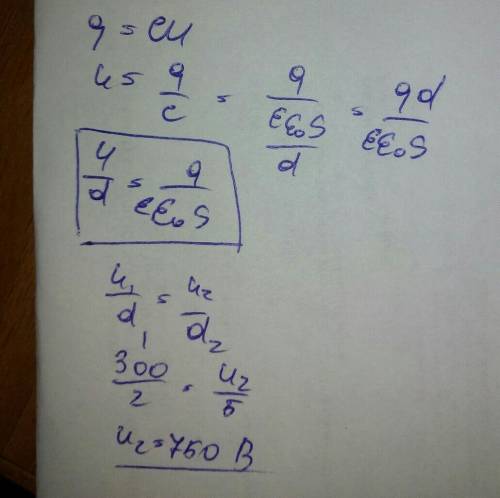 q = CU
U = q/C = q/(εε₀S/d) = qd/εε₀S
U/d = q/εε₀S
U₁/d₁ = U₂/d₂
300/2 = U₂/5
U₂ = 750 В